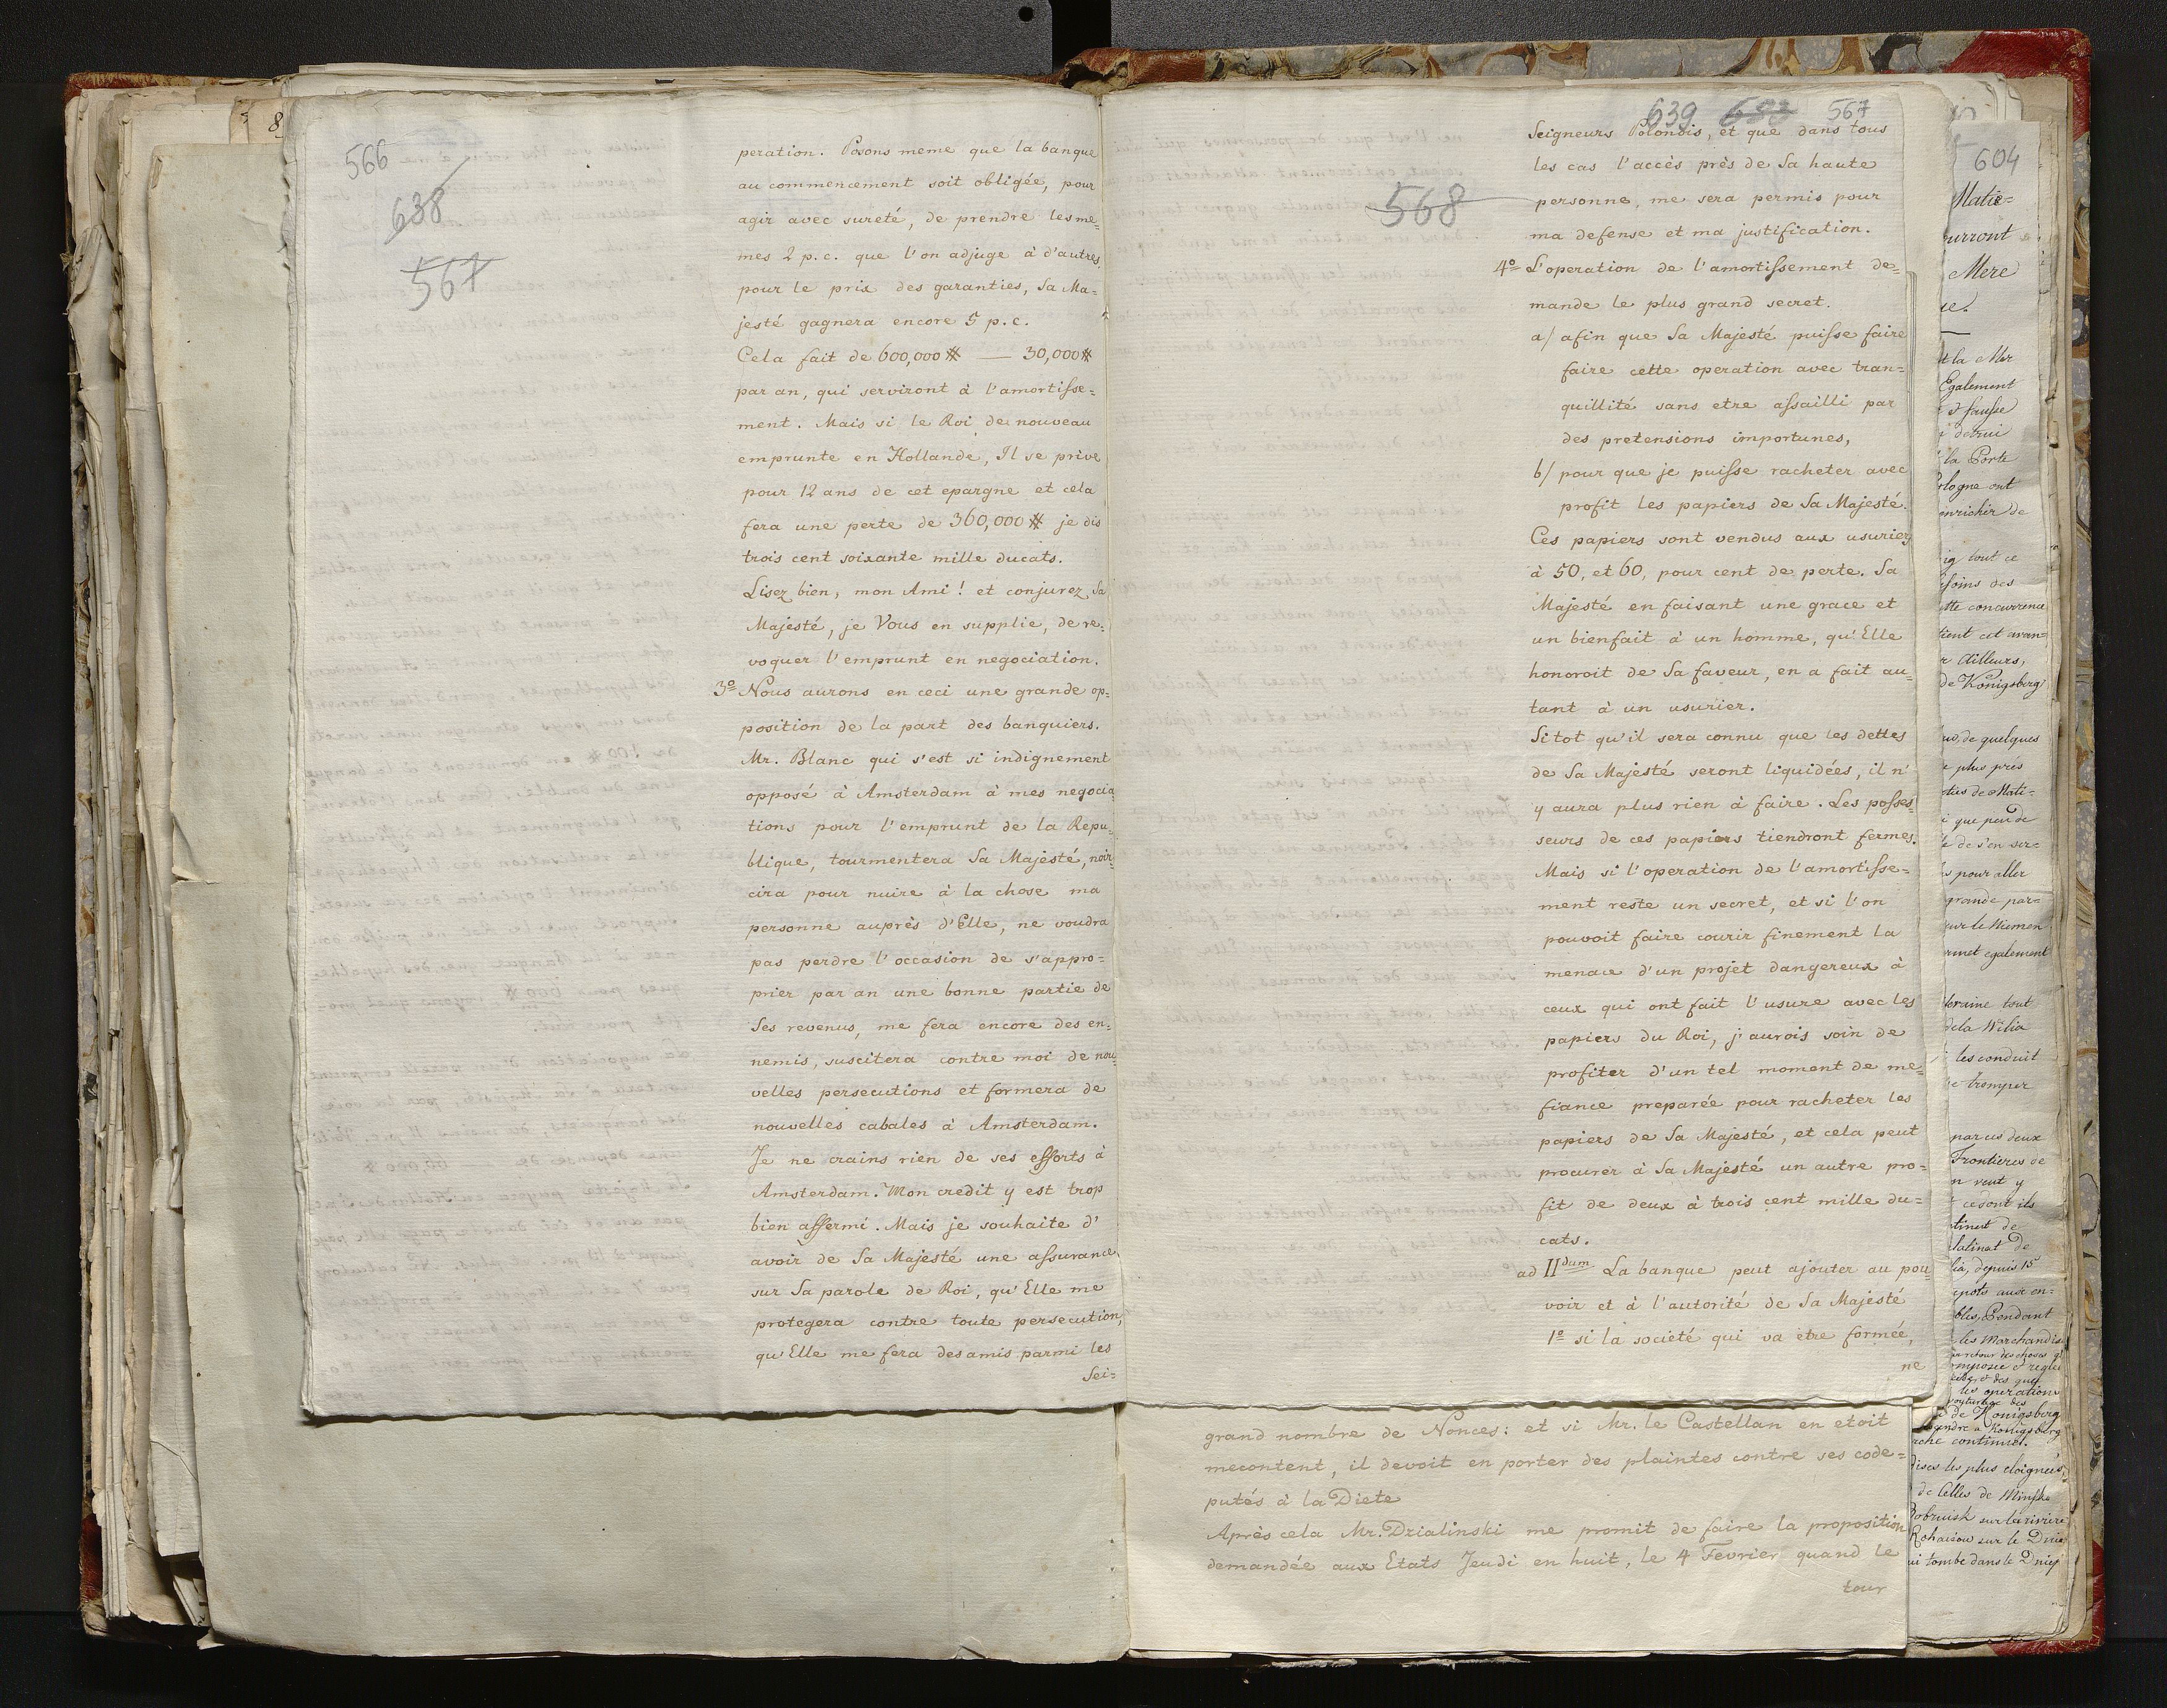 566
638
567
peration. Posons meme que la banque
au commencement soit obligée, pour
agir avec sureté, de prendre les me-
mes 2 p.c. que l'on adjuge à d'autres,
pour le prix des garanties, Sa Ma=
jesté gagnera encore 5 p.c.
Cela fait de 600,000 # — 30,000 #
par an, qui serviront à l'amortisse=
ment. Mais si le Roi de nouveau
emprunte en Hollande, Il se prive
pour 12 ans de cet epargne et cela
fera une perte de 360,000 # je dis
trois cent soixante mille ducats.
Lisez bien, mon Ami! et conjurez Sa
Majesté, je Vous en supplie, de re=
voquer l'emprunt en negociation.
3º Nous aurons en ceci une grande op=
position de la part des banquiers.
Mr. Blanc qui s'est si indignement
opposé à Amsterdam à mes negocia
tions pour l'emprunt de la Repu=
blique, tourmentera Sa Majesté, noir=
cira pour nuire à la chose ma
personne auprès d'Elle, ne voudra
pas perdre l'occasion de s'appro=
prier par an une bonne partie de
Ses revenus, me fera encore des en=
nemis, suscitera contre moi de nou=
velles persecutions et formera de
nouvelles cabales à Amsterdam.
Je ne crains rien de ses efforts à
Amsterdam. Mon credit y est trop
bien affermi. Mais je souhaite d'
avoir de Sa Majesté une assurance
sur Sa parole de Roi, qu'Elle me
protegera contre toute persecution,
qu'Elle me fera des amis parmi les
Sei=
639 567
568
Seigneurs Polonois, et que dans tous
les cas l'accès près de Sa haute
personne, me sera permis pour
ma defense et ma justification.
4º L'operation de l'amortissement de=
mande le plus grand secret.
a/ afin que Sa Majesté puisse faire
faire cette operation avec tran=
quillité sans etre assailli par
des pretensions importunes,
b/ pour que je puisse racheter avec
profit les papiers de Sa Majesté.
Ces papiers sont vendus aux usuriers
à 50, et 60, pour cent de perte. Sa
Majesté en faisant une grace et
un bienfait à un homme, qu'Elle
honoroit de Sa faveur, en a fait au=
tant à un usurier.
Sitot qu'il sera connu que les dettes
de Sa Majesté seront liquidées, il n'
y aura plus rien à faire. Les posses
seurs de ces papiers tiendront fermes.
Mais si l'operation de l'amortisse=
ment reste un secret, et si l'on
pouvoit faire courir finement la
menace d'un projet dangereux à
ceux qui ont fait l'usure avec les
papiers du Roi, j'aurois soin de
profiter d'un tel moment de me=
fiance preparée pour racheter les
papiers de Sa Majesté, et cela peut
procurer à Sa Majesté un autre pro=
fit de deux à trois cent mille du=
cats.
ad IIdum La banque peut ajouter au pou=
voir et à l'autorité de Sa Majesté
1º si la societé qui va etre formée,
ne
grand nombre de Nonces: et si Mr. le Castellan en etoit
mecontent, il devoit en porter des plaintes contre ses code=
putés à la Diete
Après cela Mr. Dzialinski me promit de faire la proposition
demandée aux Etats Jeudi en huit, le 4 Fevrier quand le
tour
604
Matie=
Mere
t la Mer
Egalement
la Porte
enricher de
tout ce
concurrence
tient cet avan=
Ailleurs,
de Königsberg
de quelques
plus près
de Mati=
que peu de
de s'en ser=
pour aller
grande par=
sur le Niemen
egalement
tout
dela Wilia
les conduit
tromper
par ces deux
Frontieres de
depuis 15
Pendant
les Marchandis
les operations
de Königsberg
continuer.
les plus eloignées
de Celles de Minsk
Bobruisk sur la riviere
sur le Dnie
tombe dans le Dniep